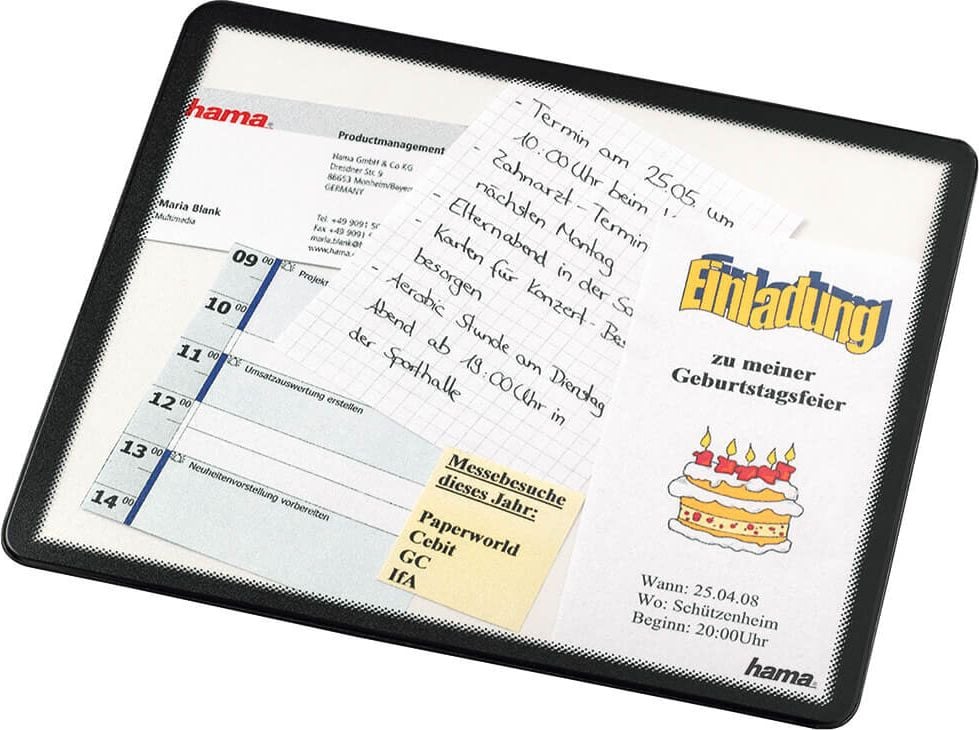 hama
Productmanagement
Hama GmbH & Co KG
Dresdner Str. 9
86653 Monheim/Bayer
GERMANY
Maria Blank
Multimedia
Tel. +49 9091
Fax +49 9091
maria.blank@h
www.hama.
09 00
Projekt
10 00
11 00
Umsatzauswertung erstellen
12 00
13 00
Neuheitenvorstellung vorbereiten
14 00
- Termin am 25.05. um
10:00Uhr beim
- Zahnarzt-Termin
nächsten Montag
- Elternabend in der
Karten für Konzert-
besorgen
- Aerobic Stunde am Dienstag
Abend ab 19:00Uhr in
der Sporthalle
Messebesuche
dieses Jahr:
Paperworld
Cebit
GC
IfA
Einladung
zu meiner
Geburtstagsfeier
Wann: 25.04.08
Wo: Schützenheim
Beginn: 20:00Uhr
hama